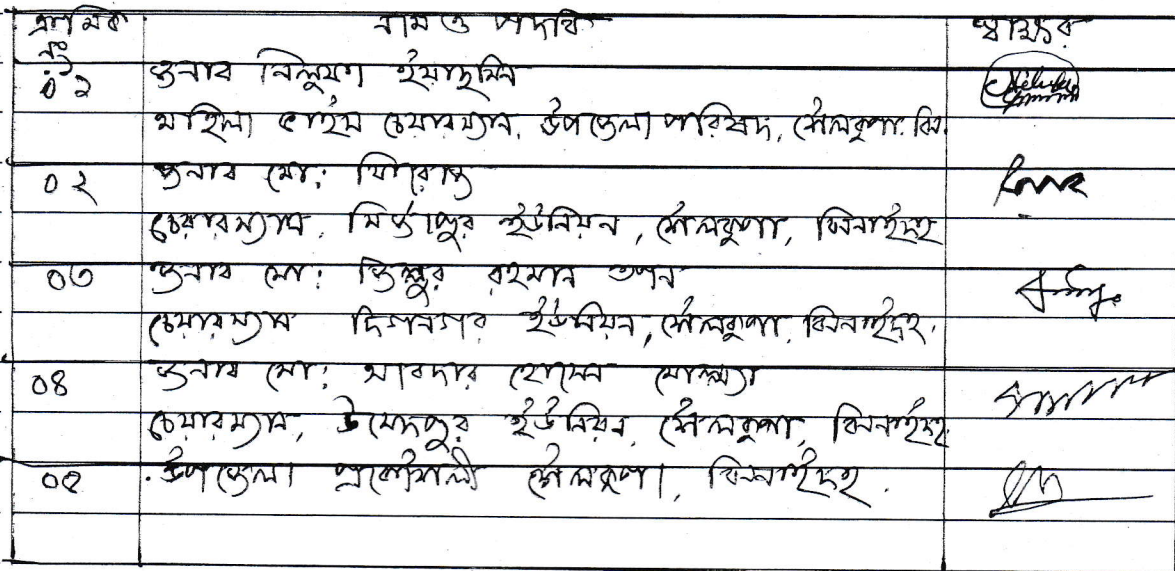 ক্রমিক নং নাম ও পদবি স্বাক্ষর
০১ জনাব নিলুফা ইয়াছমিন
মাহিলা ভাইস চেয়ারম্যান, উপজেলা পরিষদ, শৈলকুপা. ঝিনা.
০২ জনাব মো: ফিরোজ
চেয়ারম্যান, মির্জাপুর ইউনিয়ন, শৈলকুপা, ঝিনাইদহ
০৩ জনাব মো: জিল্লুর রহমান তপন
চেয়ারম্যান দিগনগর ইউনিয়ন, শৈলকুপা, ঝিনাইদহ.
০৪ জনাব মো: সাবদার হোসেন মোল্ল্যা
চেয়ারম্যান, উমেদপুর ইউনিয়ন, শৈলকুপা, ঝিনাইদহ
০৫ উপজেলা প্রকৌশলী শৈলকুপা, ঝিনাইদহ.